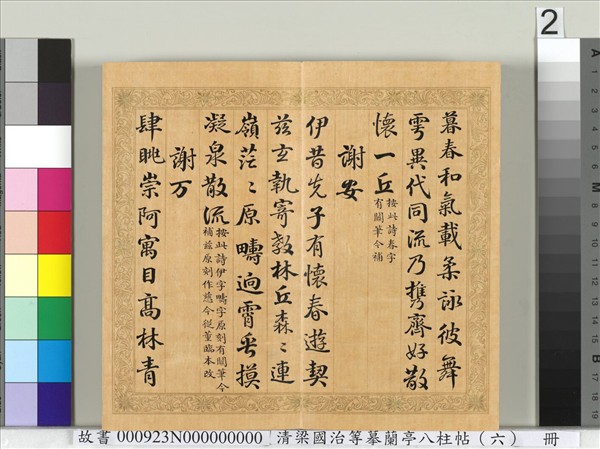 2
暮春和氣載柔詠彼舞
雩異代同流乃携齊好散
懷一丘按此詩春字
有闕筆今補
謝安
伊昔先子有懷春遊契
茲言執寄敖林丘森〻連
嶺茫〻原疇迥霄垂摸
凝泉散流按此詩伊字疇字原刻有闕筆今
補茲原刻作慈今從董臨本改
謝万
肆眺崇阿寓目髙林青
故書 000923N000000000 清梁國治等摹蘭亭八柱帖(六) 冊